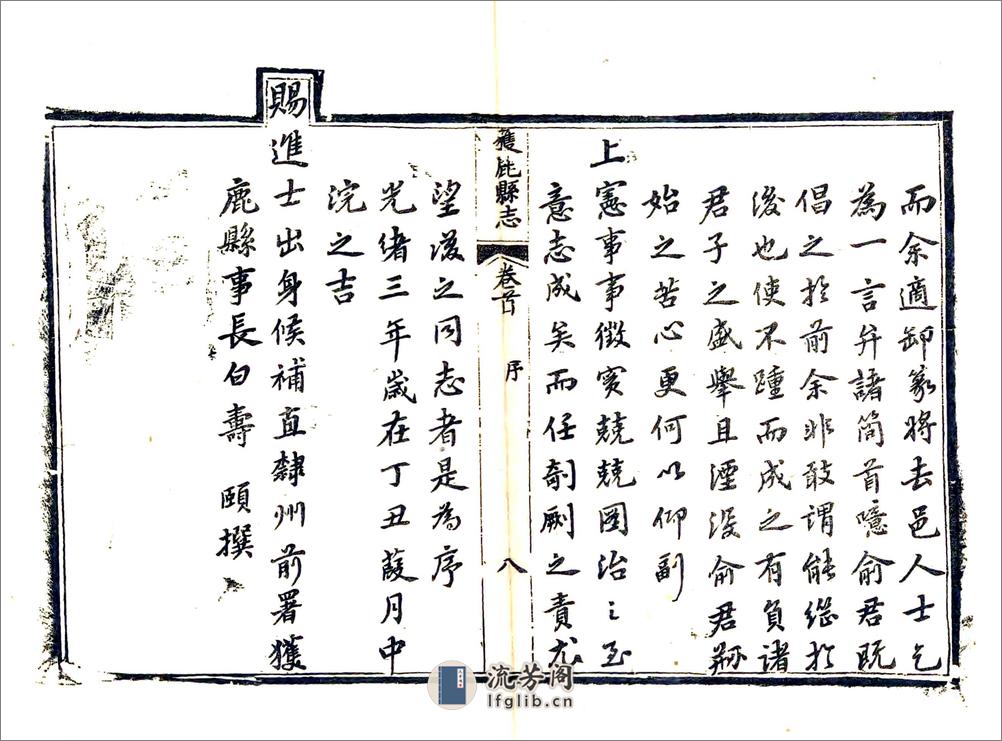 而余適卸篆將去邑人士乞
為一言弁諸简首噫俞君既
倡之於前余非敢謂能继於
後也使不踵而成之有負諸
君子之盛舉且湮没俞君剏
始之苦心更何以仰副
上憲事事徵實兢兢圖治之至
意志成矣而任剞劂之責尤
獲鹿縣志
卷首
序
八
望後之同志者是為序
光绪三年歲在丁丑葭月中
浣之吉
賜進士出身候補直隸州前署獲
鹿縣事長白壽頤撰
流芳阁
lfglib.cn